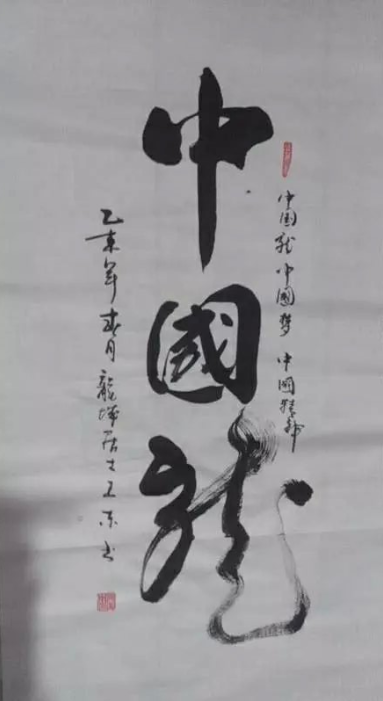 中国龙 中國梦 中國精神
中國龍
乙未年春月龍居士王东书